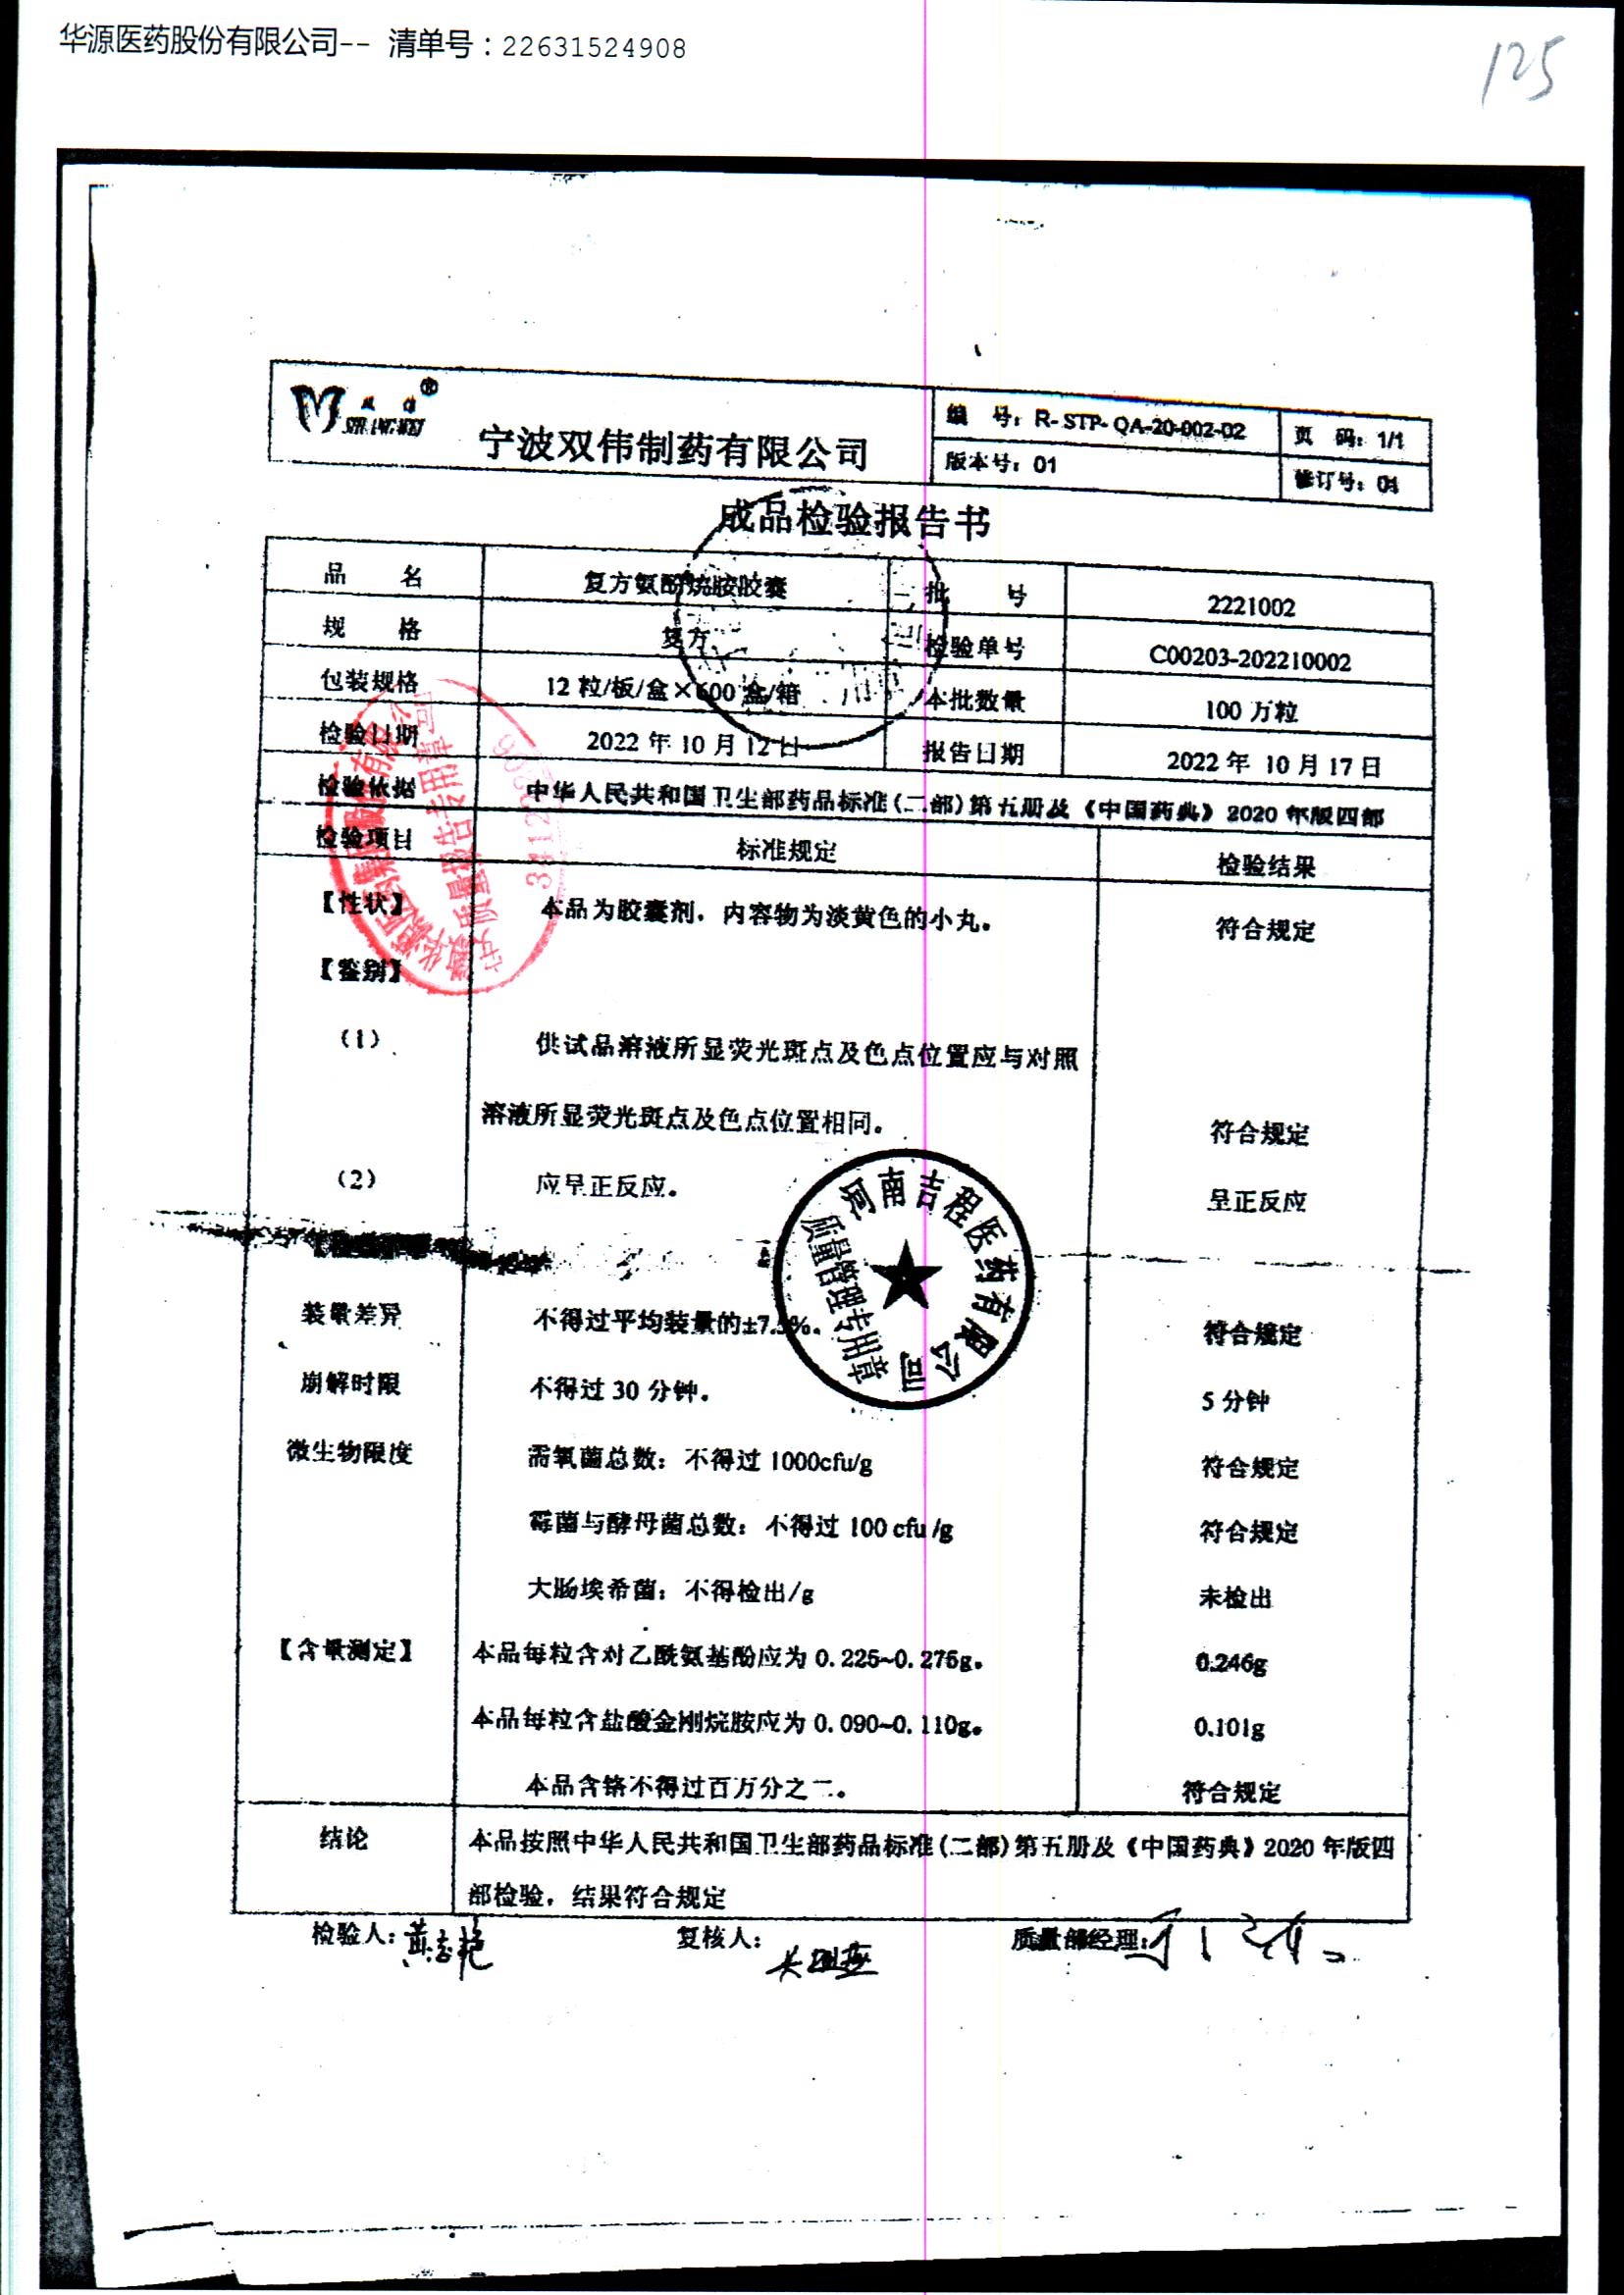 华源医药股份有限公司-- 清单号：22631524908
125
SHUANGWEI
宁波双伟制药有限公司
编 号：R-STP-QA-20-002-02
页 码：1/1
版本号：01
修订号：01
成品检验报告书
品 名 复方氨酚烷胺胶囊 批 号 2221002
规 格 复方 检验单号 C00203-202210002
包装规格 12 粒/板/盒×600 盒/箱 本批数量 100 万粒
检验日期 2022 年 10 月 12 日 报告日期 2022 年 10 月 17 日
检验依据 中华人民共和国卫生部药品标准(二部)第五册及《中国药典》2020 年版四部
检验项目 标准规定 检验结果
【性状】 本品为胶囊剂，内容物为淡黄色的小丸。 符合规定
【鉴别】
（1） 供试品溶液所显荧光斑点及色点位置应与对照
溶液所显荧光斑点及色点位置相同。 符合规定
（2） 应呈正反应。 呈正反应
装量差异 不得过平均装量的±7.5%。 符合规定
崩解时限 不得过 30 分钟。 5 分钟
微生物限度 需氧菌总数：不得过 1000cfu/g 符合规定
霉菌与酵母菌总数：不得过 100 cfu /g 符合规定
大肠埃希菌：不得检出/g 未检出
【含量测定】 本品每粒含对乙酰氨基酚应为 0.225~0.275g。 0.246g
本品每粒含盐酸金刚烷胺应为 0.090~0.110g。 0.101g
本品含铬不得过百万分之二。 符合规定
结论 本品按照中华人民共和国卫生部药品标准(二部)第五册及《中国药典》2020 年版四
部检验，结果符合规定
检验人：
复核人：
质量部经理：
河南吉程医药有限公司
质量管理专用章